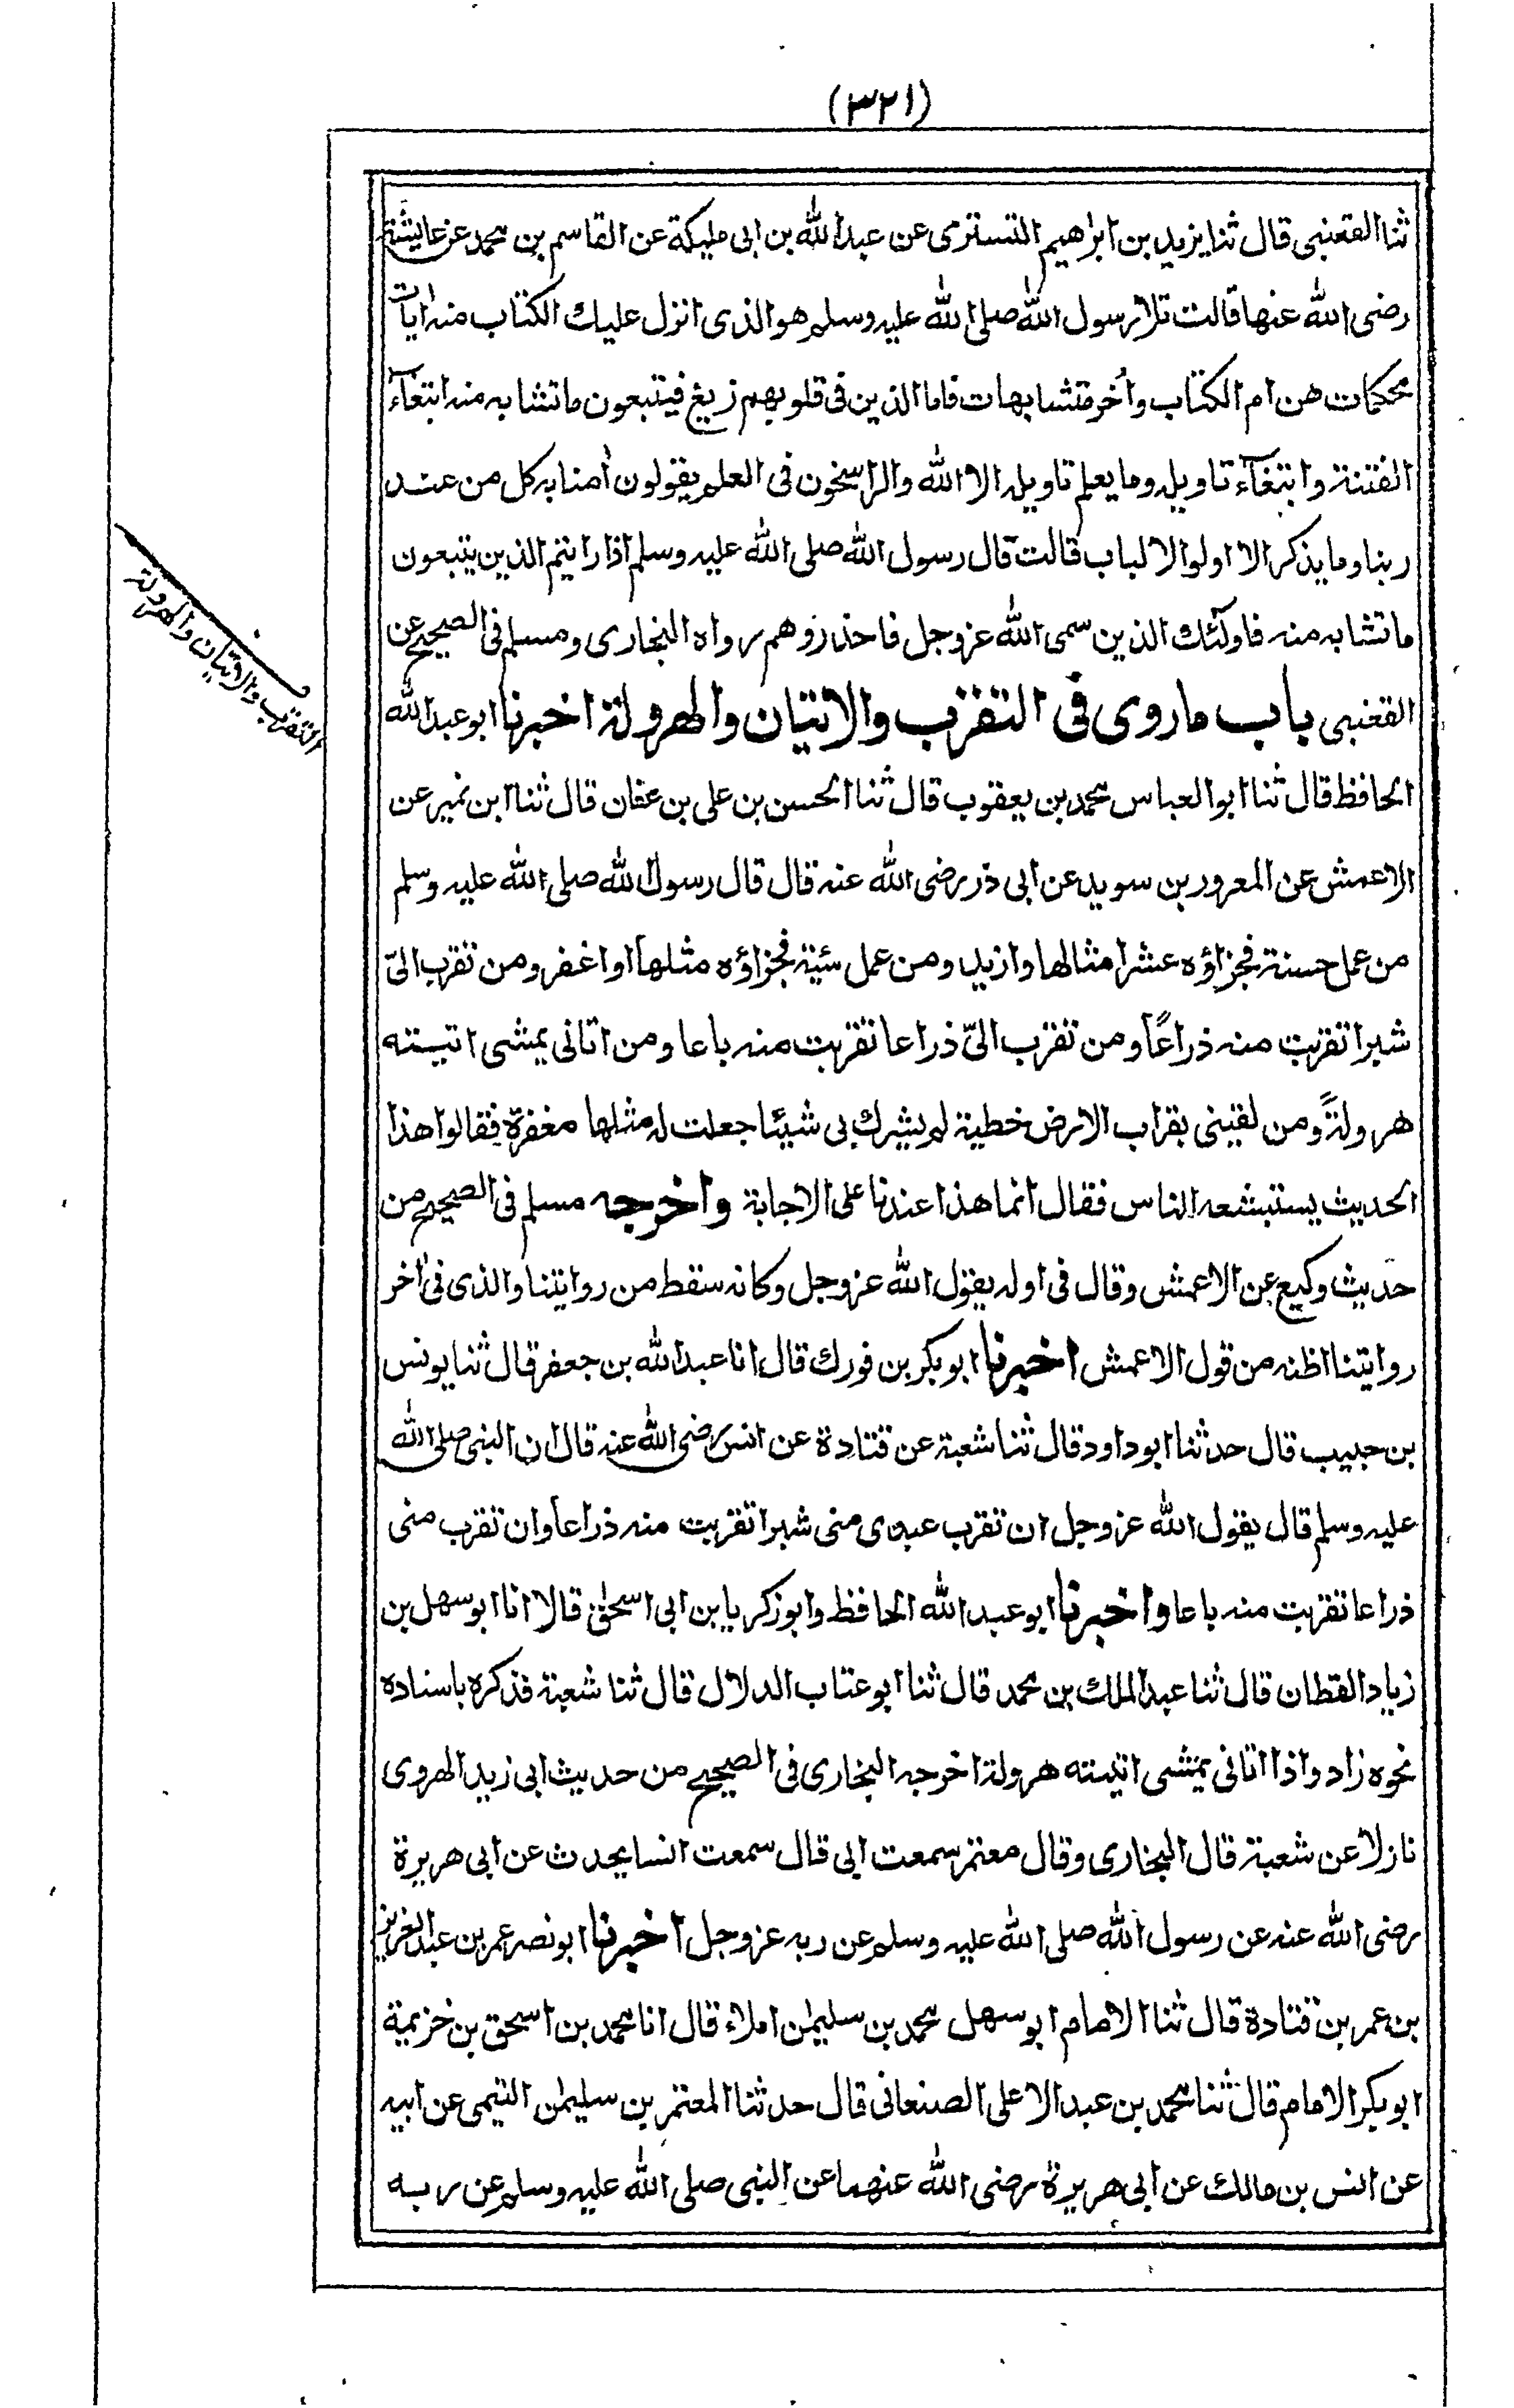 (٣٢١)
ثنا القعنبى قال ثنا يزيد بن ابراهيم التسترى عن عبد الله بن ابى مليكة عن القاسم بن محمد عن عايشة
رضى الله عنها قالت تلا رسول الله صلى الله عليه وسلم هو الذى انزل عليك الكتاب منه اٰيات
محكمات هن ام الكتاب واُخر متشابهات فاما الذين فى قلوبهم زيغ فيتبعون ما تشابه منه ابتغآء
الفتنة وابتغآء تاويله وما يعلم تاويله الا الله والراسخون فى العلم يقولون اٰمنا به كل من عند
ربنا وما يذكر الا اولوا الالباب قالت قال رسول الله صلى الله عليه وسلم اذا رايتم الذين يتبعون
ما تشابه منه فاولئك الذين سمى الله عز وجل فاحذروهم رواه البخارى ومسلم فى الصحيح عن
القعنبى باب ما روى فى التقرب والاتيان والهرولة اخبرنا ابو عبد الله
الحافظ قال ثنا ابو العباس محمد بن يعقوب قال ثنا الحسن بن على بن عفان قال ثنا ابن نمير عن
الاعمش عن المعرور بن سويد عن ابى ذر رضى الله عنه قال قال رسول الله صلى الله عليه وسلم
من عمل حسنة فجزاؤه عشر امثالها وازيد ومن عمل سئية فجزاؤه مثلها او اغفر ومن تقرب الىّ
شبرا تقربت منه ذراعًا ومن تقرب الىّ ذراعا تقربت منه باعا ومن اتانى يمشى اتيته
هرولةً ومن لقينى بقراب الارض خطية لم يشرك بى شيئا جعلت له مثلها مغفرة فقالوا هذا
الحديث يستبشعه الناس فقال انما هذا عندنا على الاجابة واخرجه مسلم فى الصحيح من
حديث وكيع عن الاعمش وقال فى اوله يقول الله عز وجل وكانه سقط من روايتنا والذى فى اٰخر
روايتنا اظنه من قول الاعمش اخبرنا ابو بكر بن فورك قال انا عبد الله بن جعفر قال ثنا يونس
بن حبيب قال حدثنا ابو داود قال ثنا شعبة عن قتادة عن انس رضى الله عنه قال ان النبى صلى الله
عليه وسلم قال يقول الله عز وجل ان تقرب عبدى منى شبرا تقربت منه ذراعا وان تقرب منى
ذراعا تقربت منه باعا واخبرنا ابو عبد الله الحافظ وابو زكريا بن ابى اسحٰق قالا انا ابو سهل بن
زياد القطان قال ثنا عبد الملك بن محمد قال ثنا ابو عتاب الدلال قال ثنا شعبة فذكره باسناده
نحوه زاد واذا اتانى يمشى اتيته هرولة اخرجه البخارى فى الصحيح من حديث ابى زيد الهروى
نازلا عن شعبة قال البخارى وقال معتمر سمعت ابى قال سمعت انسا يحدث عن ابى هريرة
رضى الله عنه عن رسول الله صلى الله عليه وسلم عن ربه عز وجل اخبرنا ابو نصر عمر بن عبد العزيز
بن عمر بن قتادة قال ثنا الامام ابو سهل محمد بن سليمٰن املاء قال انا محمد بن اسحق بن خزيمة
ابو بكر الامام قال ثنا محمد بن عبد الاعلى الصنعانى قال حدثنا المعتمر بن سليمٰن التيمى عن ابيه
عن انس بن مالك عن ابى هريرة رضى الله عنهما عن النبى صلى الله عليه وسلم عن ربه
التقرب والاتيان والهرولة